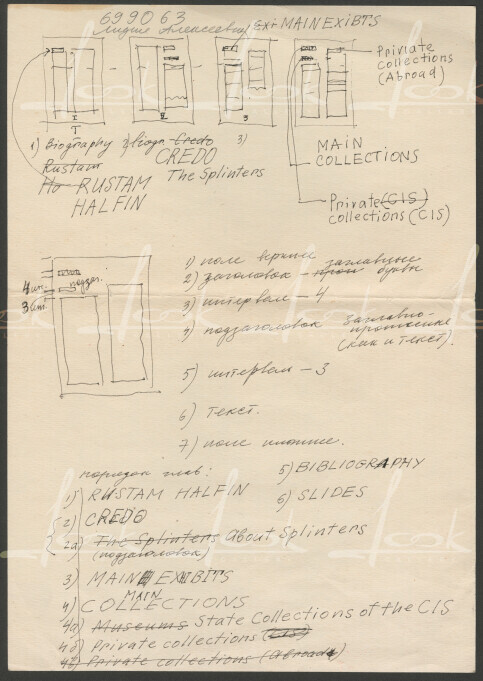 699063
Лидия Алексеевна Exi MAIN EXIBTS
Private
collections
(Abroad)
I II 3
1) Biography 2) Biogr Credo 3)
Rustam CREDO
Ho RUSTAM The Splinters
HALFIN
MAIN
COLLECTIONS
Private (CIS)
collections (CIS)
4 ин.
3 инт.
1) поле верхние
2) заголовок – проп заглавные буквы
3) интервал – 4
4) подзаголовок Заглавно-
прописные
(как и текст).
5) интервал – 3
6) Текст.
7) поле нижние.
порядок глав:
1) RUSTAM HALFIN
2) CREDO
2a) The Splinters About Splinters
(подзаголовок)
3) MAIN EXIBITS
4) MAIN COLLECTIONS
4a) Museums State Collections of the CIS
4б) Private collections (CIS)
4в) Private collections (Abroad)
5) BIBLIOGRAPHY
6) SLIDES
look